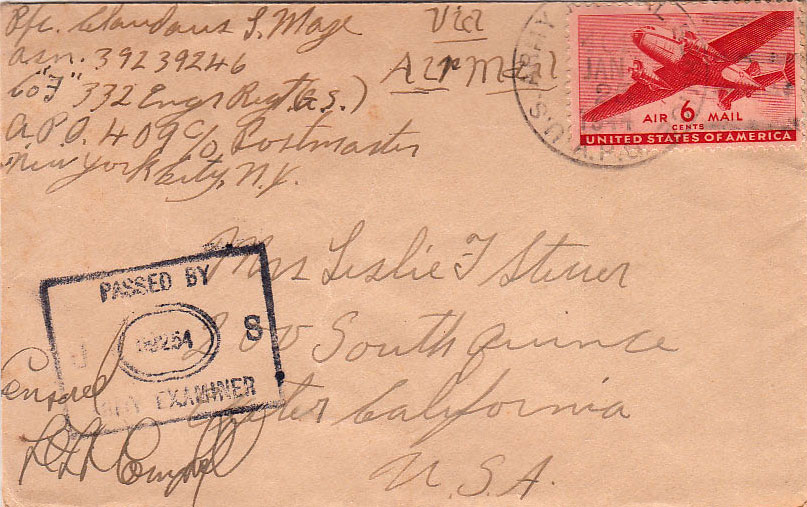 Pfc. Claudaus S. Maze
asn. 39239246
Co "F" 332 Engr Regt (G.S.)
A.P.O. 409 c/o Postmaster
New York City, N.Y.
Via
Air Mail
U.S. ARMY
A.P.O.
JAN
AIR 6 MAIL
CENTS
UNITED STATES OF AMERICA
Mrs Leslie F Sterer
200 South Quince
Exeter California
U.S.A.
PASSED BY
U S
ARMY EXAMINER
Censored